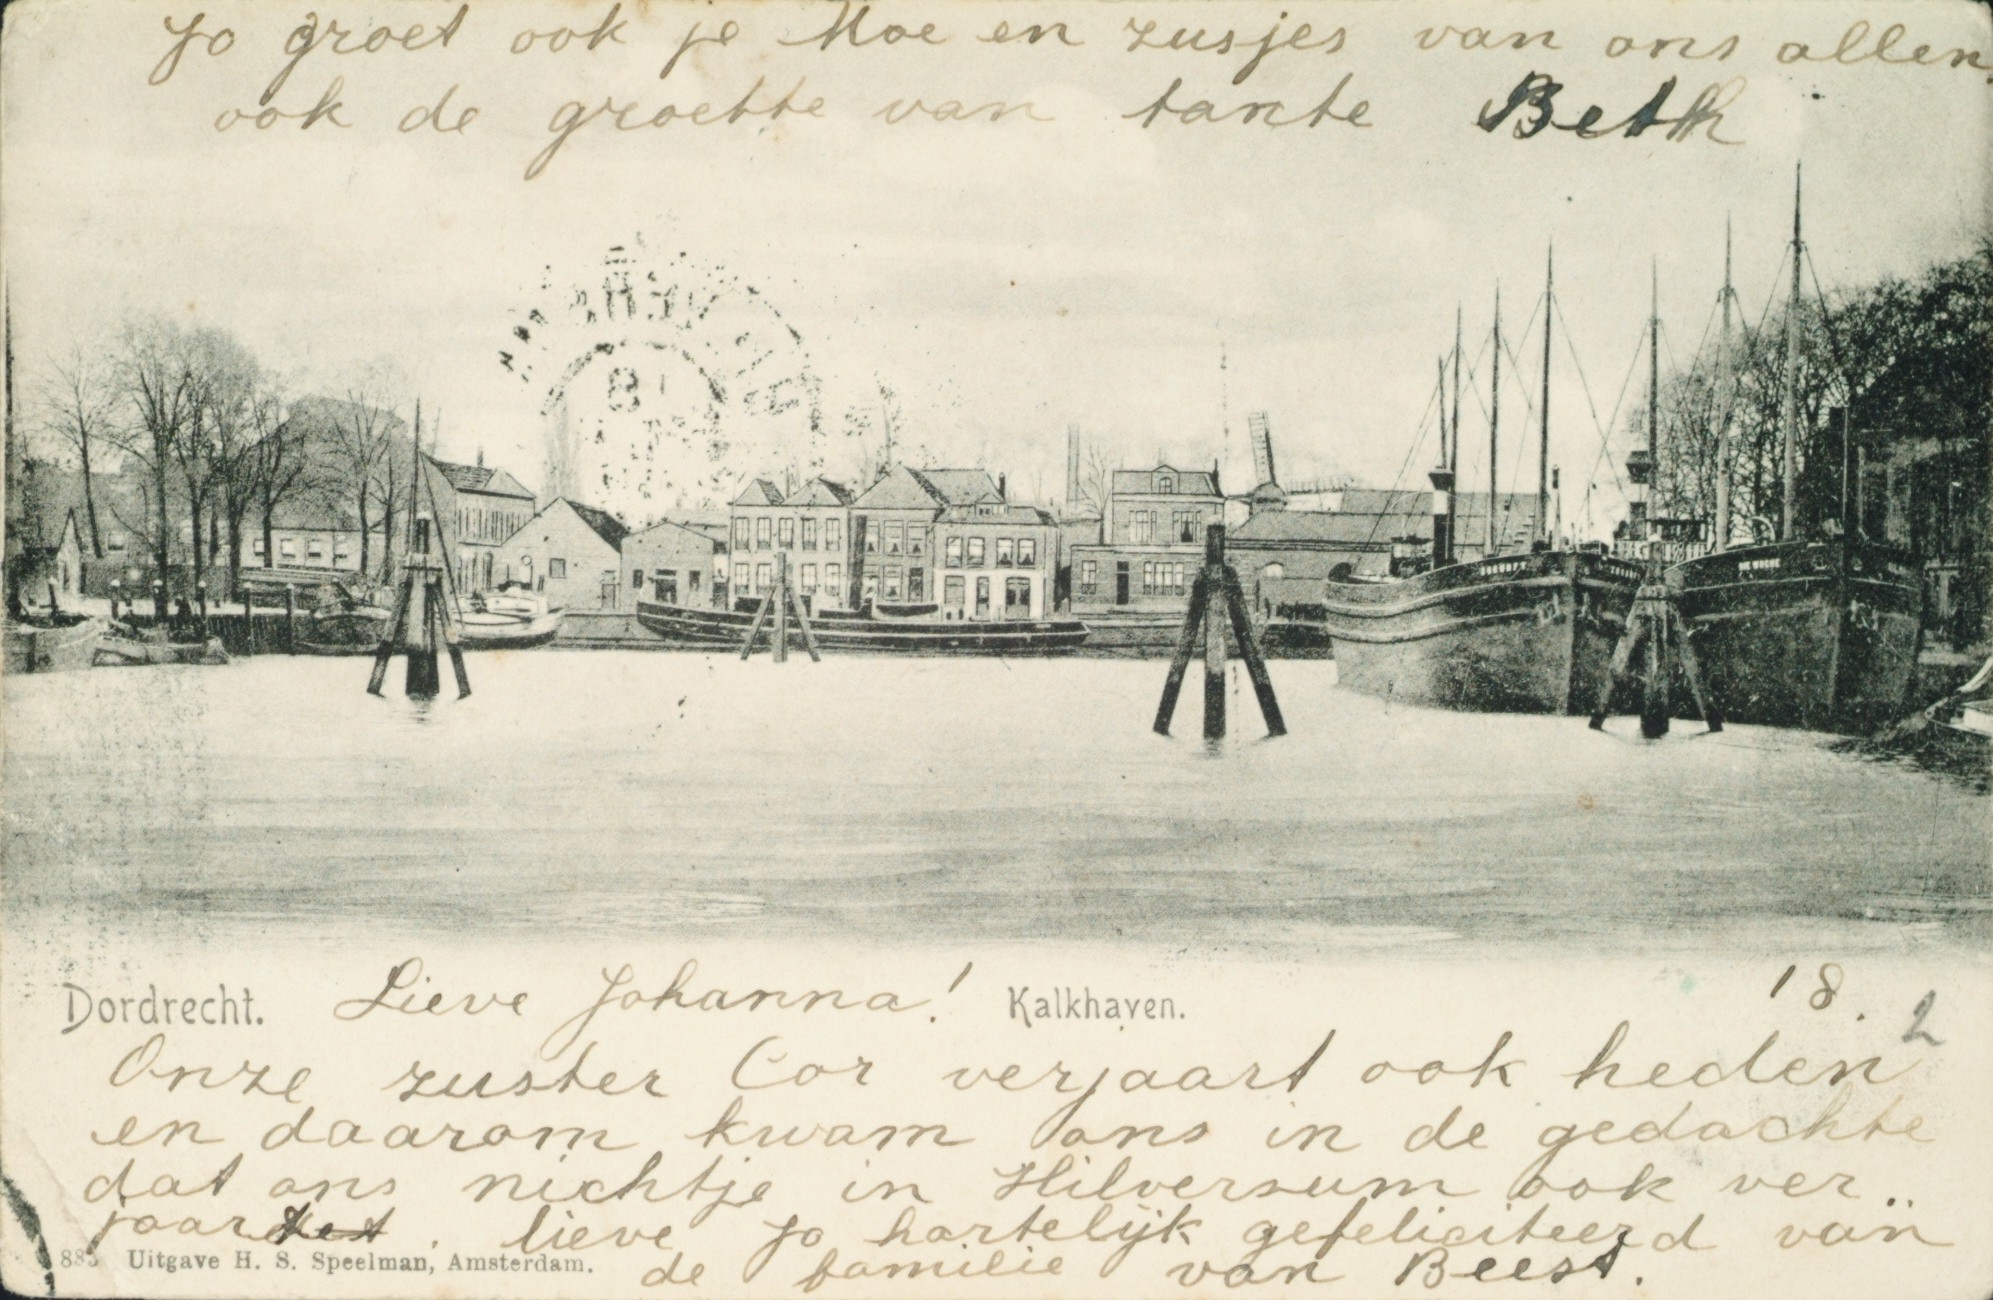 Jo groet ook je Moe en zusjes van ons allen,
ook de groette van tante Beth
Dordrecht. Lieve Johanna! Kalkhaven. 18. 2
Onze zuster Cor verjaart ook heden
en daarom kwam ons in de gedachte
dat ons nichtje in Hilversum ook ver..
jaar . lieve Jo hartelijk gefeliciteerd van
de familie van Beest.
Uitgave H. S. Speelman, Amsterdam.